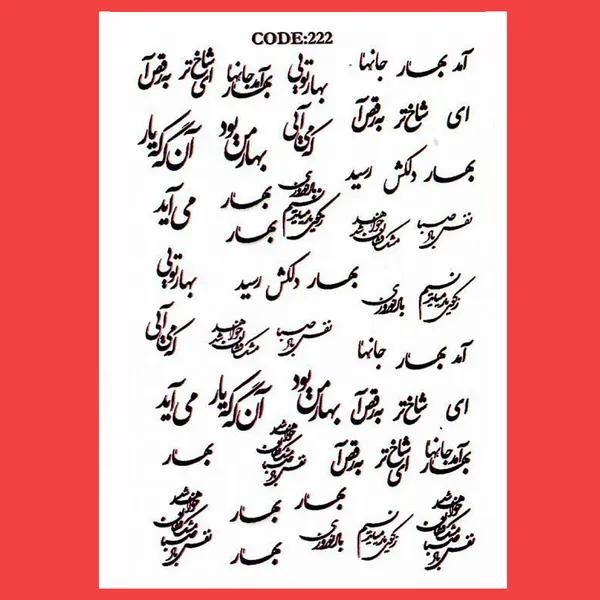 CODE:222
آمد بهار جانها
بهار تویی
بهار آمد جانها
ای شاخ تر
به رقص آ
ای شاخ تر به رقص آ
که می آیی
بهار من بود
آن گه که یار
بهار دلکش رسید
بهار
می آید
نفس باد صبا
مشک فشان خواهد شد
بهار
بهار دلکش رسید
بهار تویی
باد نوروزی
نفس باد صبا
مشک فشان خواهد شد
که می آیی
آمد بهار جانها
ای شاخ تر به رقص آ
بهار من بود
آن گه که یار
می آید
بهار آمد جانها
ای شاخ تر
به رقص آ
نفس باد صبا مشک فشان خواهد شد
بهار
بهار
نفس باد صبا مشک فشان خواهد شد
باد نوروزی
بهار
نفس باد صبا مشک فشان خواهد شد
بهار